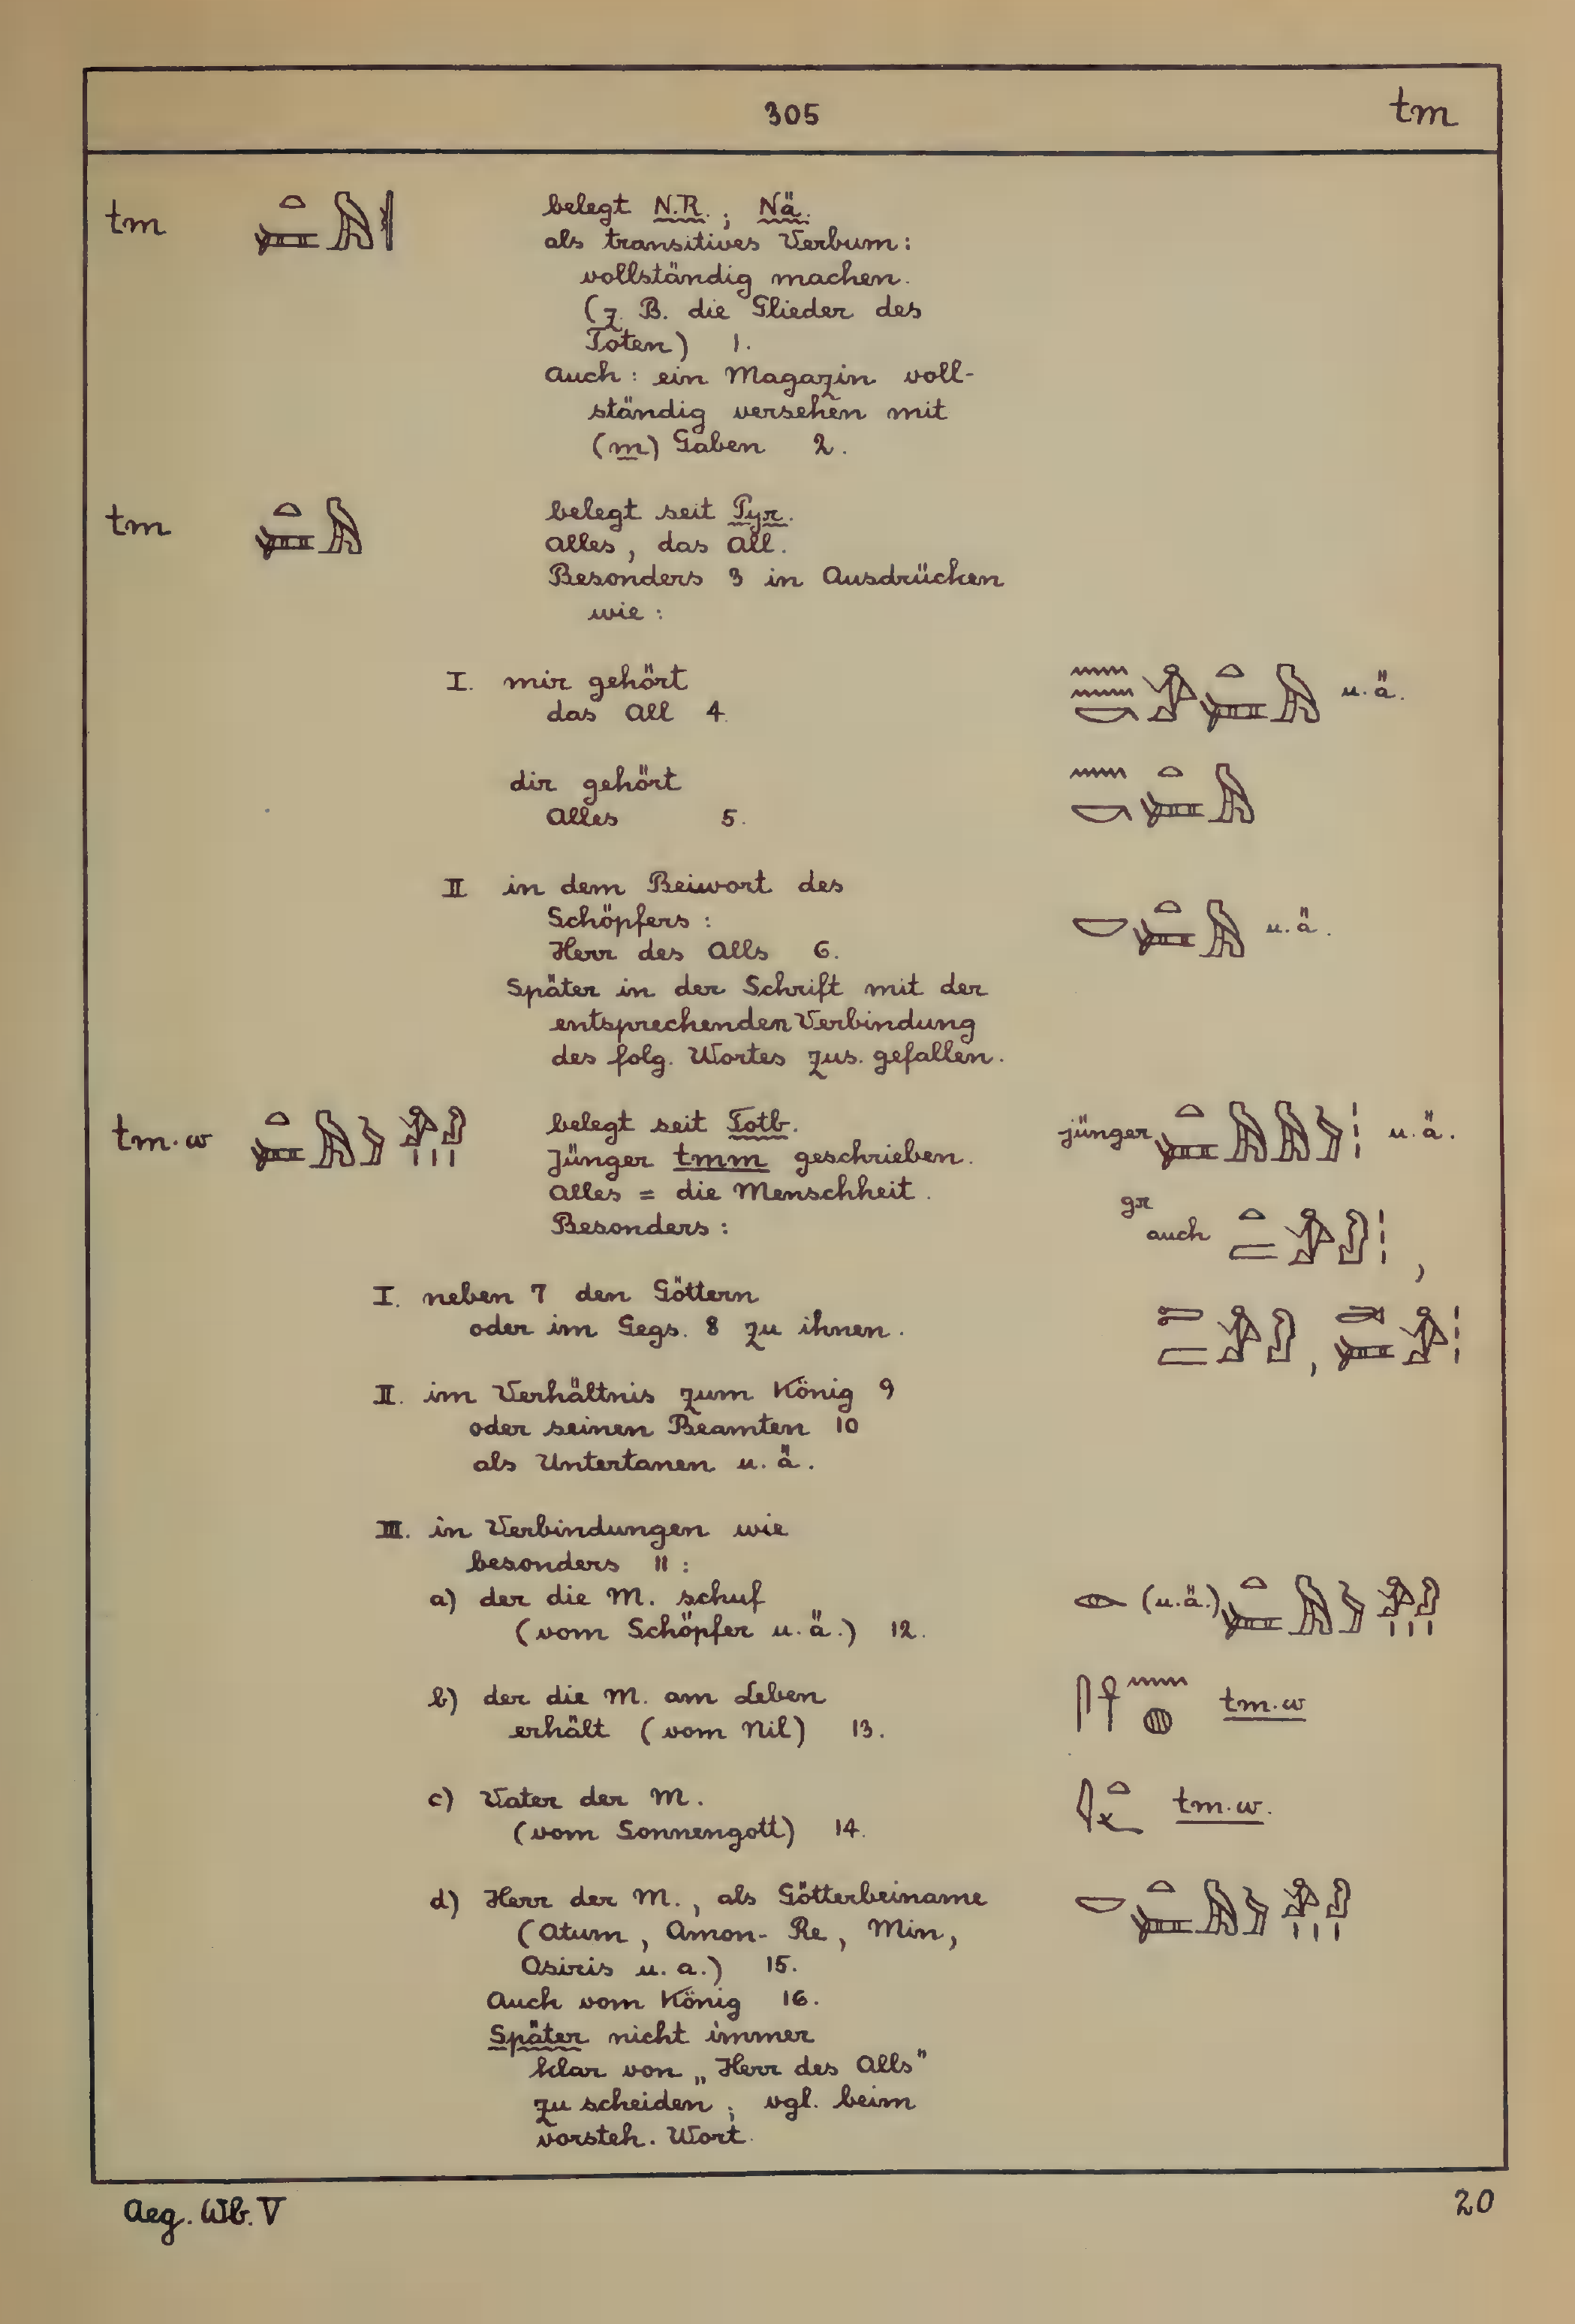 305 tm
tm belegt N.R.; Nä.
als transitives Verbum:
vollständig machen.
(z. B. die Glieder des
Toten) 1.
Auch: ein Magazin voll-
ständig versehen mit
(m) Gaben 2.
tm belegt seit Pyr.
Alles, das All.
Besonders 3 in Ausdrücken
wie:
I. mir gehört
das All 4. u.ä.
dir gehört
Alles 5.
II in dem Beiwort des
Schöpfers:
Herr des Alls 6. u.ä.
Später in der Schrift mit der
entsprechenden Verbindung
des folg. Wortes zus. gefallen.
tm.w belegt seit Totb. jünger u.ä.
Jünger tmm geschrieben.
Alles = die Menschheit. gr
Besonders: auch ,
I. neben 7 den Göttern
oder im Gegs. 8 zu ihnen. ,
II. im Verhältnis zum König 9
oder seinen Beamten 10
als Untertanen u.ä.
III. in Verbindungen wie
besonders 11:
a) der die M. schuf (u.ä.)
(vom Schöpfer u.ä.) 12.
b) der die M. am Leben tm.w
erhält (vom Nil) 13.
c) Vater der M. tm.w.
(vom Sonnengott) 14.
d) Herr der M., als Götterbeiname
(Atum, Amon-Re, Min,
Osiris u.a.) 15.
Auch vom König 16.
Später nicht immer
klar von „Herr des Alls"
zu scheiden; vgl. beim
vorsteh. Wort.
Aeg. Wb. V 20